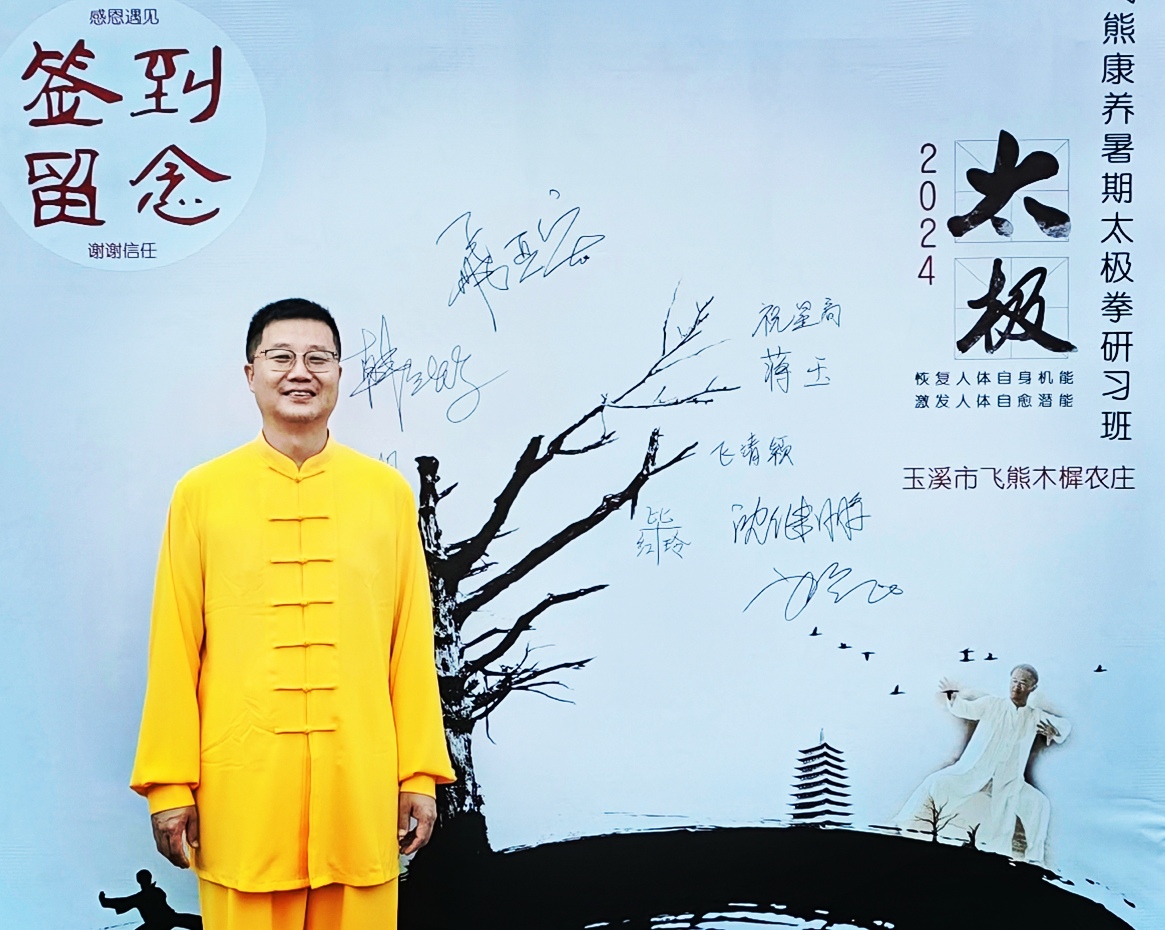 感恩遇见
签到
留念
谢谢信任
熊康养暑期太极拳研习班
2024
太极
恢复人体自身机能
激发人体自愈潜能
玉溪市飞熊木樨农庄
祝星高
蒋玉
飞清颖
毕红玲
沈继鹏